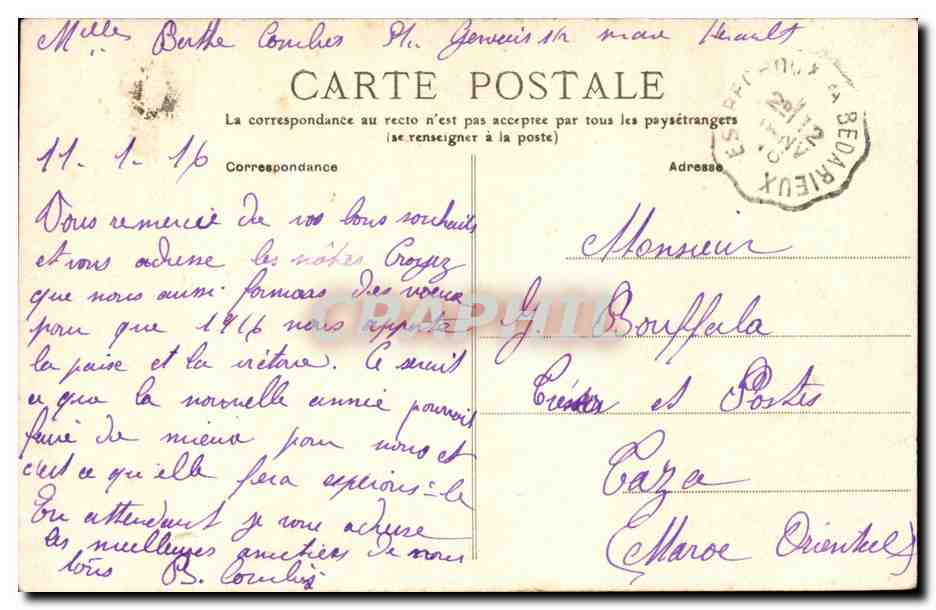 Melles Berthe Combes St. Gervais sur mare Hérault
CARTE POSTALE
La correspondance au recto n'est pas acceptée par tous les paysétrangers
(se renseigner à la poste)
11-1-16
Correspondance
Vous remercie de vos bons souhaits
et vous adresse les nôtres Croyez
que nous aussi formons des voeux
pour que 1916 nous apporte
la paise et la victoire. Ce serait
ce que la nouvelle année pourrait
faire de mieux pour nous et
c'est ce qu'elle fera espérons-le
En attendant je vous adresse
les meilleures amitiés de nous
tous B. Combes
Adresse
Monsieur
G. Bouffala
Trésor et Postes
Taza
(Maroc Oriental)
BEDARIEUX
CPARAMA